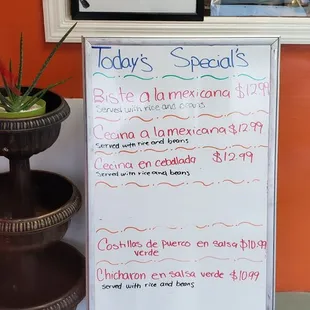 Today's Special's
Biste a la mexicana $12.99
Served with rice and beans
Cecina a la mexicana $12.99
served with rice and beans
Cecina en cebollada $12.99
Served with rice and beans
Costillas de puerco en salsa $10.99
verde
Chicharon en salsa verde $10.99
served with rice and beans